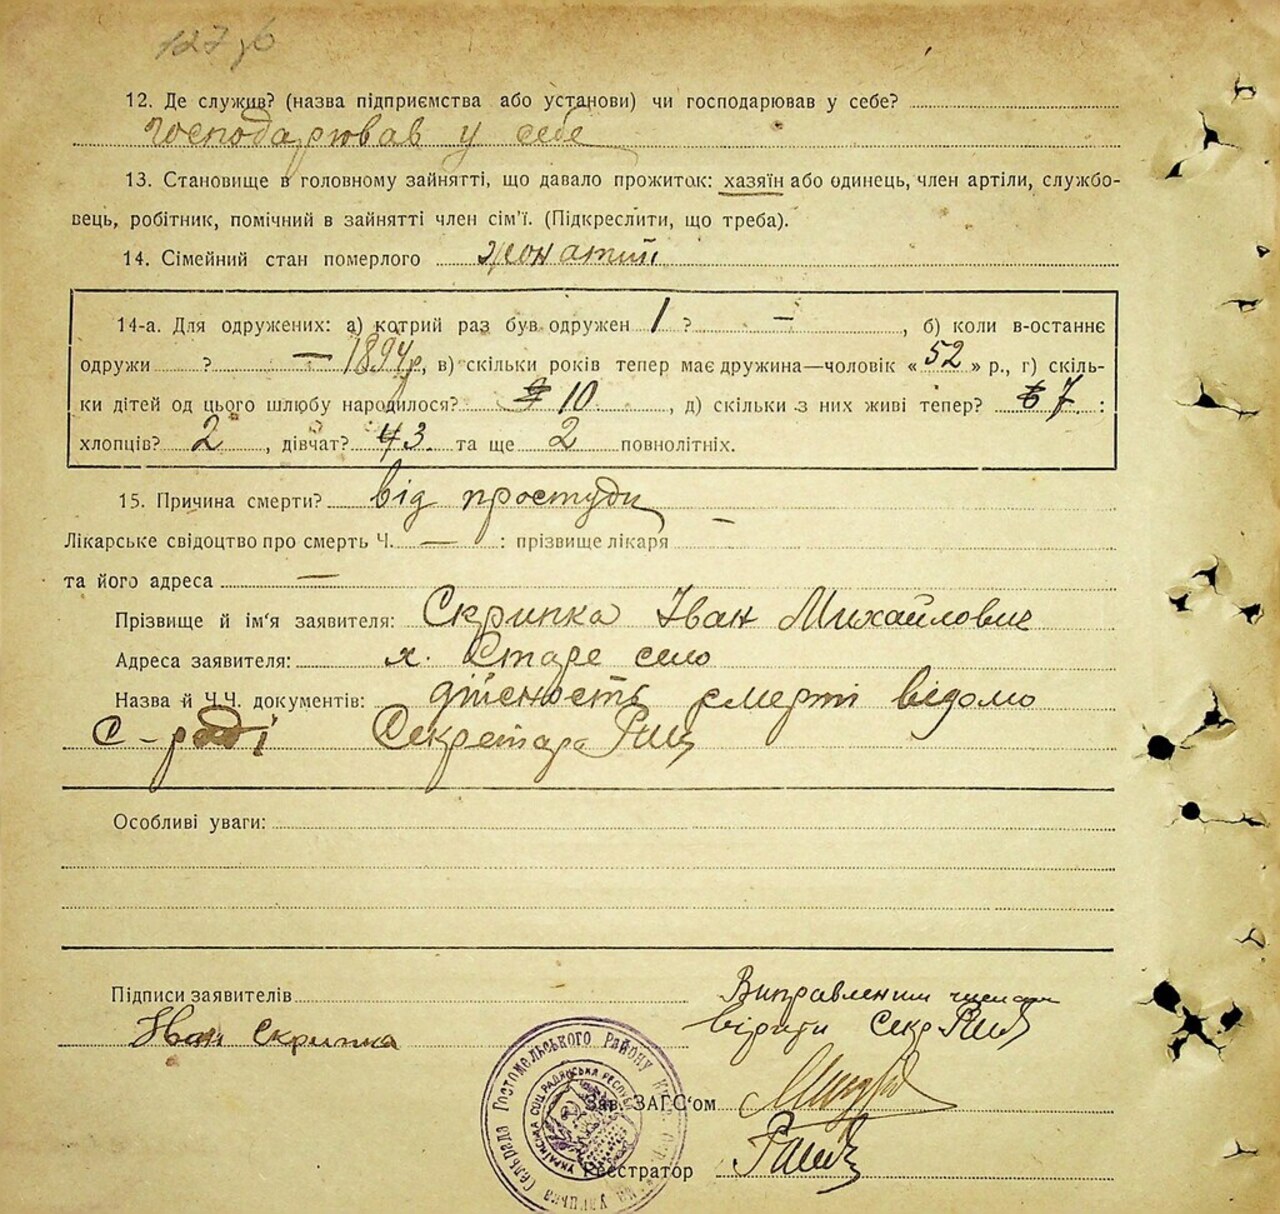 127 зб
12. Де служив? (назва підприємства або установи) чи господарював у себе?
господарював у себе
13. Становище в головному зайнятті, що давало прожиток: хазяїн або одинець, член артіли, службо-
вець, робітник, помічний в зайнятті член сім'ї. (Підкреслити, що треба).
14. Сімейний стан померлого жонатий
14-а. Для одружених: а) котрий раз був одружен 1 ? — , б) коли в-останнє
одружи ? — 1894 р, в) скільки років тепер має дружина—чоловік « 52 » р., г) скіль-
ки дітей од цього шлюбу народилося? 10 , д) скільки з них живі тепер? 7 :
хлопців? 2 , дівчат? 3 та ще 2 повнолітніх.
15. Причина смерти? від простуди
Лікарське свідоцтво про смерть Ч. — : прізвище лікаря —
та його адреса —
Прізвище й ім'я заявителя: Скрипка Іван Михайлович
Адреса заявителя: х. Старе село
Назва й Ч.Ч. документів: дійсность смерті відомо
С-раді Секретара
Особливі уваги:
Підписи заявителів
Іван Скрипка
Виправленим числам
вірити Секр
Зав. ЗАГС'ом
Реєстратор
Сельрада Гостомельського Району
Українська Соц. Радянська Республ